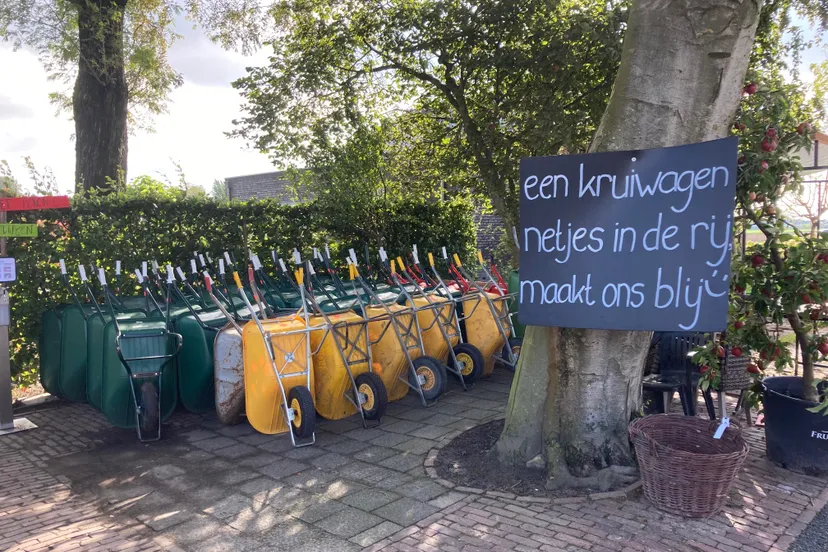 een kruiwagen
netjes in de rij
maakt ons blij